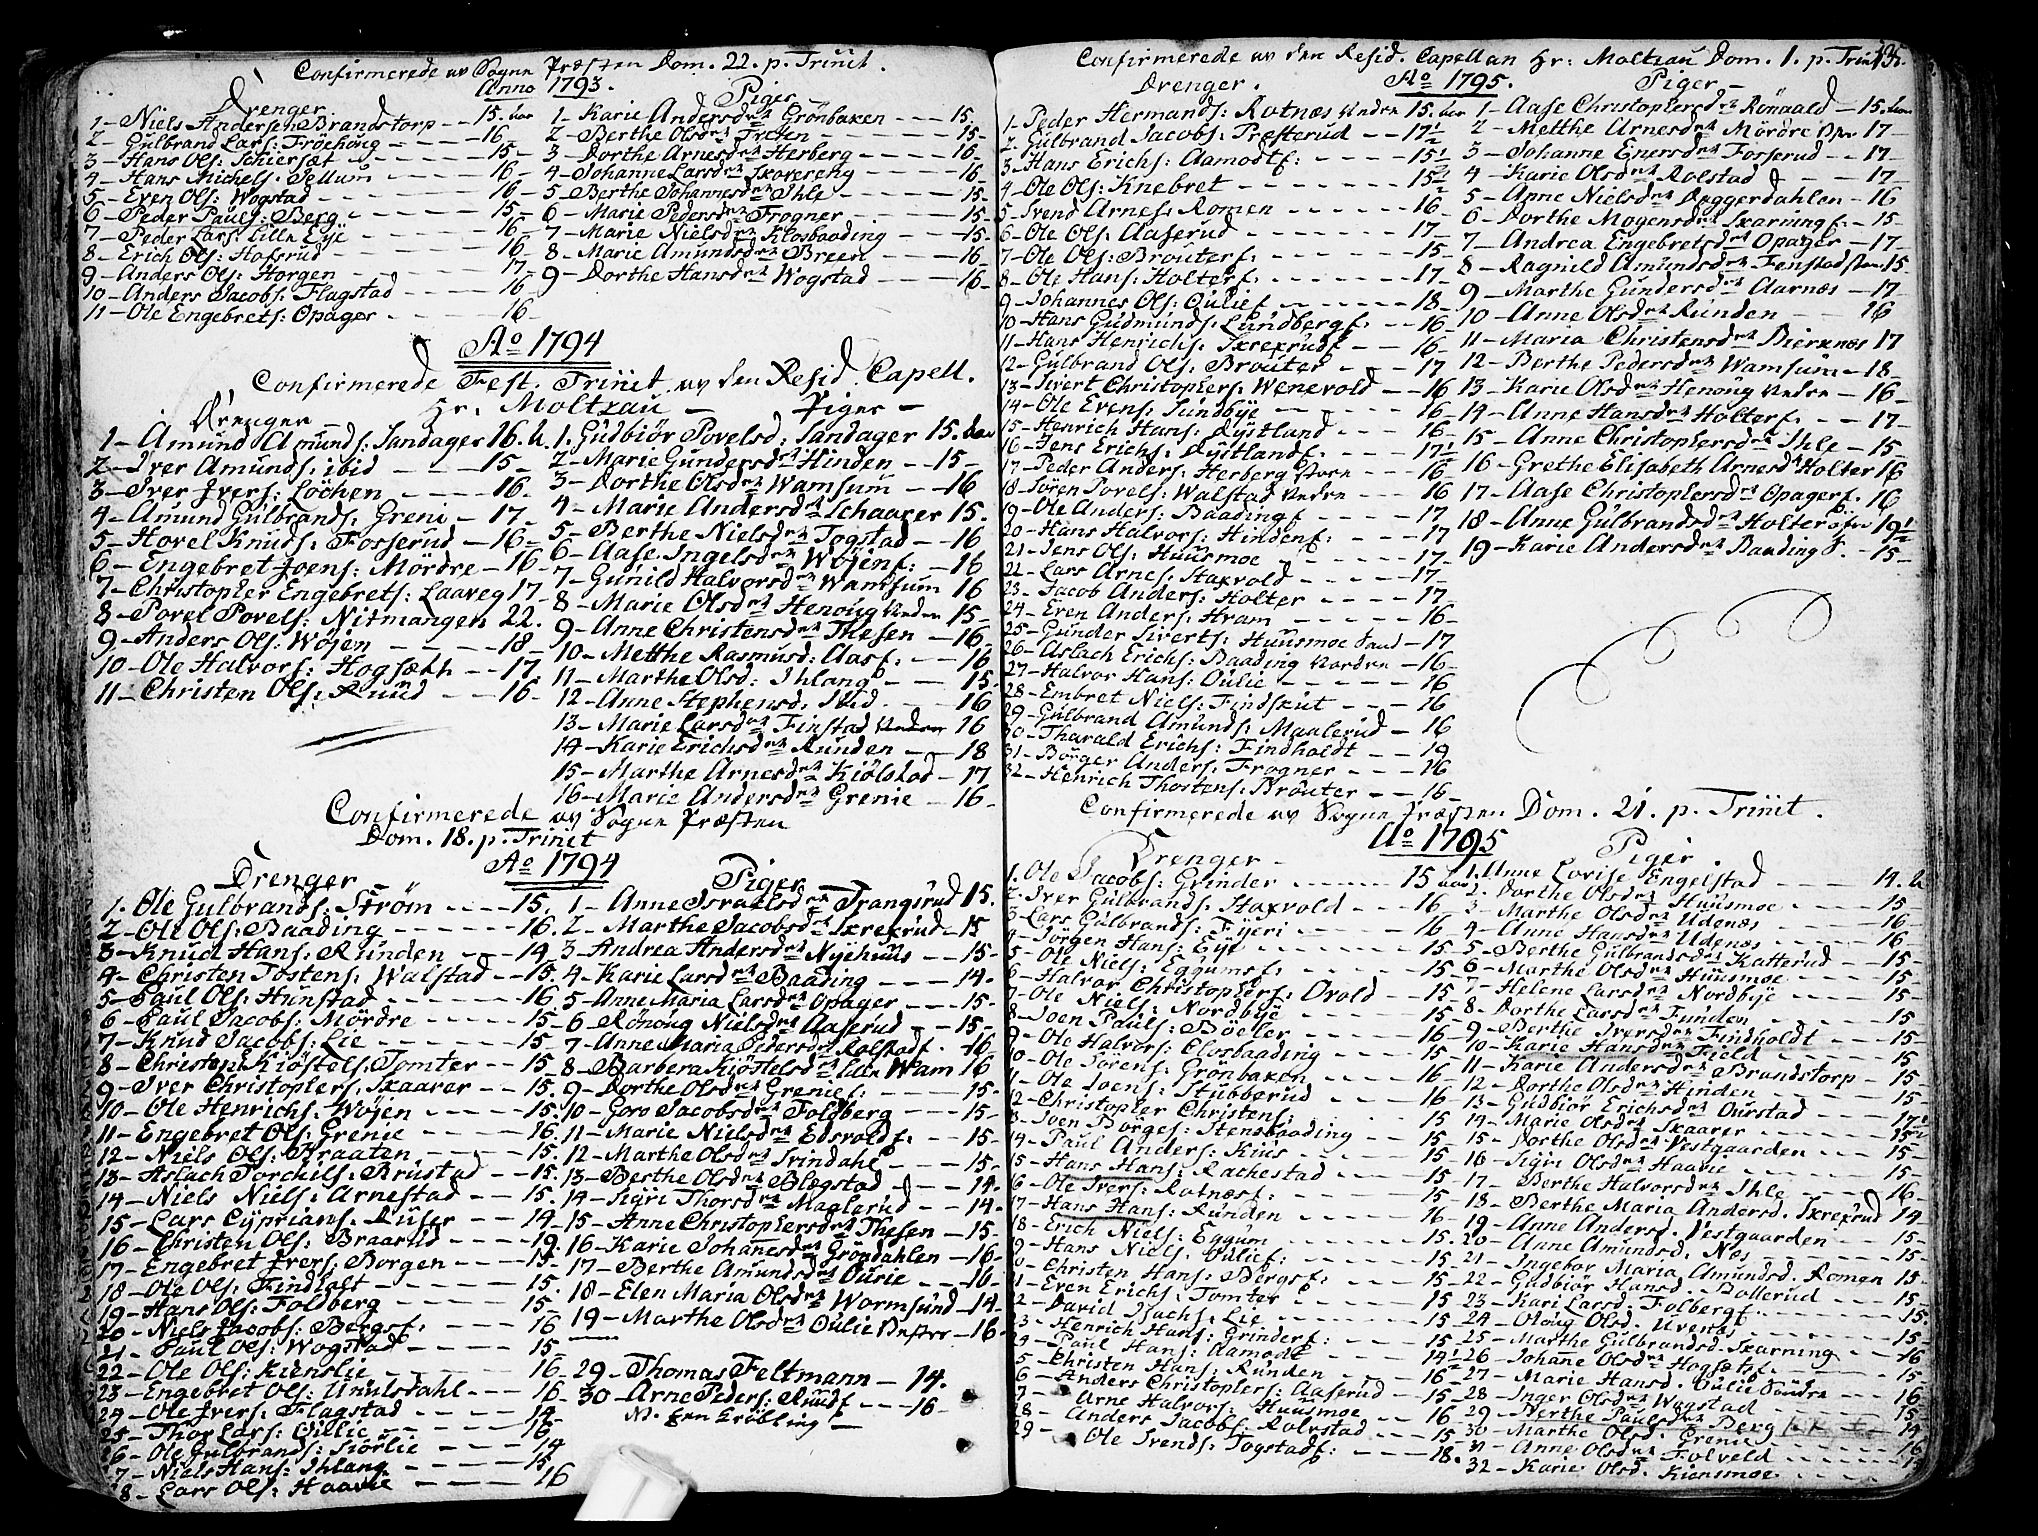 Confirmerede av Sogne Præsten Dom. 22. p. Trinit.
Anno 1793.
Drenger
1- Niels Andersen Brandstorp -- 15. aar
2- Gulbrand Lars: Frøehoug - 16
3- Hans Ols: Schiersæt - 15-
4- Hans Michels: Sellum - 16-
5- Even Ols: Wogstad - 16-
6- Peder Pauls: Berg - 15-
7- Peder Lars: Lille Eÿe - 16-
8- Erich Ols: Hofsrud - 16
9- Anders Ols: Horgen - 17
10- Anders Jacobs: Flagstad - 16
11- Ole Engebrets: Opager - 16
Piger
1- Karie Andersdr Grönbaken --- 15.
2- Berthe Olsdr Frøen - 15-
3- Dorthe Arnesdr Herberg - 16-
4- Johanne Larsdr Skovereng - 16-
5- Berthe Johannesdr Ihle - 15-
6- Marie Pedersdr Frogner - 15-
7- Marie Nielsdr Klosbaading - 15-
8- Marie Amundsdr Breen - 16-
9- Dorthe Hansdr Wogstad - 16-
Ao 1794
Confirmerede Fest. Trinit. av den Resid. Capell.
Hr. Moltzau
Drenger
1- Amund Amunds: Sandager 16. a.
2- Iver Amunds: ibid - 15-
3- Iver Ivers: Löchen - 16-
4- Amund Gulbrands: Greni - 17-
5- Hovel Knuds: Fosserud - 16-
6- Engebret Joens: Mördre - 16-
7- Christopher Engebrets: Laaveg 17-
8- Povel Povels: Nitmangen 22.
9- Anders Ols: Wöjen - 18-
10- Ole Halvors: Hogsæth - 17
11- Christen Ols: Ruud - 16-
Piger
1. Gudbiör Povelsd: Sandager 15. aar
2- Marie Gundersdr Hinden - 15-
3- Dorthe Olsdr Wamsum - 16
4- Marie Andersdr Schaarer 15.
5- Berthe Nielsdr Togstad - 16
6- Aase Ingelsdr Wöjen f: - 16
7- Gunild Halvorsdr Wamsum 16
8- Marie Olsdr Henoug Nedre 15-
9- Anne Christensdr Thesen - 16-
10- Metthe Rasmusd: Aas f: - 16
11- Marthe Olsd: Ihlang - 15.
12- Anne Stephensd. Ibid. - 16
13- Marie Larsdr Finstad Nedre 16
14- Karie Erichsdr Runden - 18
15- Marthe Arnesdr Kiölstad - 17
16- Marie Andersdr Grenie - 16-
Confirmerede av Sogne Præsten
Dom. 18. p. Trinit
Ao 1794
Drenger
1. Ole Gulbrands: Ström - 15.
2- Ole Ols: Baading - 16.
3- Knud Hans: Runden - 14
4- Christen Tostens: Walstad - 15.
5- Paul Ols: Hunstad - 16
6- Paul Jacobs: Mördre - 15-
7- Knud Jacobs: Lie - 15-
8- Christoph Kiöstels: Tomter - 15-
9- Iver Christophers: Skaarer - 15.
10- Ole Henrichs: Wöjen - 15.
11- Engebret Ols: Grenie - 16.
12- Niels Ols: Braaten - 15.
13- Aslach Torchils: Brustad - 15.
14- Niels Niels: Arnestad - 15.
15- Lars Cyprians: Ruser - 14
16- Christen Ols: Braarud - 19.
17- Engebret Ivers: Borgen - 15.
18- Ole Ols: Findhalt - 15.
19- Hans Ols: Foldberg - 15-
20- Niels Jacobs: Bergs f: - 16
21- Paul Ols: Wogstad - 15-
22- Ole Ols: Kienslie - 16
23- Engebret Ols: Unulsdahl - 16-
24- Ole Ivers: Flagstad - 14-
25- Thor Lars: Oulie - 16
26- Ole Gulbrands: Siorlie - 14
27- Niels Hans: Ihlang - 15
28- Lars Ols: Haavie - 16
Piger
1- Anne Israelsdr Trangsrud 15.
2- Marthe Jacobsdr Skrexrud - 15
3- Andrea Andersdr Nÿehuus - 15-
4- Karie Larsdr Baading - 14-
5- Anne Maria Larsdr Opager - 15-
6- Rönoug Nielsdr Aaserud - 15-
7- Anne Maria Pedersdr Rolstad f. - 16
8- Barbera Kiöstelsdr lille Wam 16
9- Dorthe Olsdr Grenie f: - 15-
10- Goro Jacobsdr Foldberg - 15-
11- Marie Nielsdr Edsvold f: - 15-
12- Marthe Olsdr Trindahl - 15-
13- Berthe Olsdr Blegstad - 14-
14- Sigri Thorsdr Maalerud - 14-
15- Anne Christophersdr Thesen - 15-
16- Karie Johanesdr Grondahlen - 16-
17- Berthe Amundsdr Ourie - 16-
18- Elen Maria Olsdr Wormsund - 14-
19- Marthe Olsdr Oulie Vester - 16-
29- Thomas Feltmann - 14.
30- Arne Peders: Ruud f - 16-
N. Een Kröbling -
Confirmerede av den Resid. Capellan Hr: Moltzau Dom. 1. p. Trinit.
Ao 1795.
Drenger.
1- Peder Hermands: Rotnæs Nedre 15. aar
2- Gulbrand Jacobs: Præsterud - 17½
3- Hans Erichs: Aamodt f: - 15½
4- Ole Ols: Knebret - 15½
5- Svend Arnes: Romen - 16
6- Ole Ols: Aaserud - 17-
7- Ole Ols: Brouter f: - 15-
8- Ole Hans: Holter f: - 17
9- Johannes Ols: Oulie f - 18-
10- Hans Gudmunds: Lundberg f: - 16-
11- Hans Henrichs: Skrexrud f - 16-
12- Gulbrand Ols: Brouter - 17
13- Sivert Christophers: Wenevold - 16
14- Ole Evens: Sundbye - 16-
15- Henrich Hans: Rÿstland - 16-
16- Jens Erichs: Rÿstland f: - 17½
17- Peder Anders: Herberg Store - 16
18- Sören Povels: Walstad Nedre - 16
19- Ole Anders: Baading f - 17
20- Hans Halvors: Hinden f: - 17
21- Jens Ols: Huusmoe - 17-
22- Lars Arnes: Staxvold - 17-
23- Jacob Anders: Holter - 17-
24- Even Anders: Hvam - 16-
25- Gunder Siverts: Huusmoe Sand - 17
26- Aslach Erichs: Baading Nordre - 16-
27- Halvor Hans: Oulie - 16
28- Embret Niels: Findskut - 16
29- Gulbrand Amunds: Maalerud - 16
30- Tharald Erichs: Findholdt - 19
31- Börger Anders: Frogner - 16
32- Henrich Thostens: Brouter - 16-
Piger
1- Aase Christophersdr Rönaald - 15. aar
2- Metthe Arnesdr Mördre Øvre 17-
3- Johanne Enersdr Fosserud - 17-
4- Karie Olsdr Rolstad - 17
5- Anne Nielsdr Daggerdahlen - 16
6- Dorthe Mogensdr Skarning f: - 15-
7- Andrea Engebretsdr Opager - 17-
8- Ragnild Amundsdr Fenstad 15-
9- Marthe Gundersdr Aarnæs - 17-
10- Anne Olsdr Runden - 16
11- Maria Christensdr Dierxnæs 17
12- Berthe Pedersdr Wamsum - 18-
13- Karie Olsdr Henoug Nedre - 16-
14- Anne Hansdr Holter f: - 17-
15- Anne Christophersdr Ihle - 15-
16- Grethe Elisabeth Arnesdr Holter 16
17- Aase Christophersdr Opager f. 16
18- Anne Gulbrandsdr Holter øfre 19½
19- Karie Andersdr Baading f. - 15-
Confirmerede av Sogne Præsten Dom. 21. p. Trinit.
Ao 1795
Drenger
1. Ole Jacobs: Grinder - 15 aar
2- Iver Gulbrands: Staxvold - 16
3- Lars Gulbrands: Fÿeri - 16
4- Jörgen Hans: Eÿe - 15
5- Ole Niels: Eggum f: - 15-
6- Halvor Christophers: Ovold - 15-
7- Ole Niels: Nordbÿe - 15
8- Joen Pauls: Böeler - 16-
9- Ole Halvors: Closbaading - 15
10- Ole Sörens: Grönbaken - 16-
11- Ole Joens: Stubberud - 16
12- Christopher Christens: - 15
13- Joen Börges: Stensbaading - 15
14- Paul Anders: Kius - 15
15- Hans Hans: Rachestad - 15
16- Ole Ivers: Rotnæs f: - 15-
17- Hans Hans: Runden - 16
18- Erich Niels: Eggum - 15
19- Hans Niels: Oulie f: - 15-
20- Christen Hans: Bergs f: - 15
21- Even Erichs: Tomter - 15
22- David Isachs: Lie - 15
23- Henrich Hans: Grinder f: - 15
24- Paul Hans: Aamodt - 14½
25- Christen Hans: Runden - 16
26- Anders Christophers: Aaserud - 15
27- Arne Halvors: Huusmoe - 16
28- Anders Jacobs: Rolvstad - 15
29- Ole Svends: Togstad f: - 18.
Piger
1. Anne Lovise Engelstad - 14. a
2. Dorthe Olsdr Huusmoe - 15
3- Marthe Olsdr Udenæs - 16
4- Anne Hansdr Udenæs - 16-
5- Berthe Gulbrandsdr Katterud - 15-
6- Marthe Olsdr Huusmoe - 15-
7- Helene Larsdr Nordbÿe - 15-
8- Dorthe Larsdr Funden - 15
9- Berthe Iversdr Findholdt - 15-
10- Karie Hansdr Field - 15
11- Karie Andersdr Brandstorp - 15-
12- Dorthe Olsdr Hinden - 15
13- Gudbiör Erichsdr Ourstad - 17½
14- Marie Olsdr Skaarer - 15½
15- Dorthe Olsdr Vestgaarden - 15-
16- Sigri Olsdr Haavie - 15
17- Berthe Halvorsdr Ihle - 16
18- Berthe Maria Andersd. Skrexrud 14
19- Anne Andersd. Vestgaarden - 15-
20- Anne Amundsd. Nes - 15-
21- Ingebor Maria Amundsd. Romen 15-
22- Gudbiör Hansd. Bollerud - 15
23- Kari Larsd. Folberg f. - 15.
24- Oloug Olsd. Uvenæs - 15
25- Marthe Gulbrandsd. Skarning - 16
26- Johane Olsdr Hogsæt f. - 15
27- Marie Hansd. Oulie Söndre - 16
28- Inger Olsdr Wogstad - 15
29- Berthe Paulsdr Berg
30- Marthe Olsd. Grenie - 16
31- Anne Olsdr Folveld - 14
32- Karie Olsd. Kiensmoe